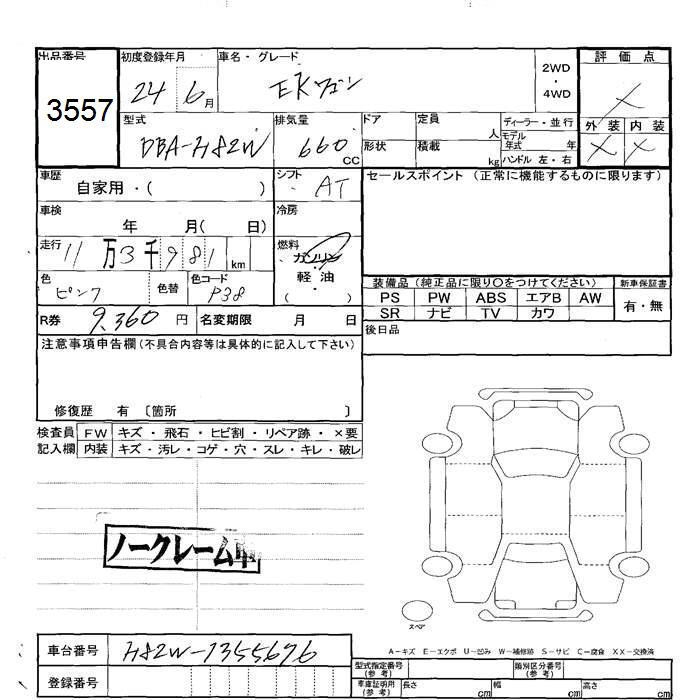 出品番号
3557
初度登録年月
24 6月
車名・グレード
EKワゴン
2WD
・
4WD
評価点
×
型式
DBA-H82W
排気量
660 CC
ドア
形状
定員 人
積載 kg
ディーラー・並行
モデル
年式 年
ハンドル 左・右
外装 内装
× ×
車歴
自家用・( )
シフト
AT
セールスポイント(正常に機能するものに限ります)
車検
年 月( 日)
冷房
走行
11万3千981km
燃料
ガソリン
軽油
( ・ )
色
ピンク
色替
色コード
P38
装備品(純正品に限り○をつけてください)
新車保証書
PS PW ABS エアB AW
SR ナビ TV カワ
有・無
R券 9,360円
名変期限 月 日
後日品
注意事項申告欄(不具合内容等は具体的に記入して下さい)
修復歴 有 〔箇所 〕
検査員
記入欄
FW キズ・飛石・ヒビ割・リペア跡・×要
内装 キズ・汚レ・コゲ・穴・スレ・キレ・破レ
ノークレーム車
スペア
A-キズ E-エクボ U-凹み W-補修跡 S-サビ C-腐食 XX-交換済
車台番号 H82W-1355676
登録番号
型式指定番号
(参考)
類別区分番号
(参考)
車庫証明用
(参考)
長さ cm 幅 cm 高さ cm